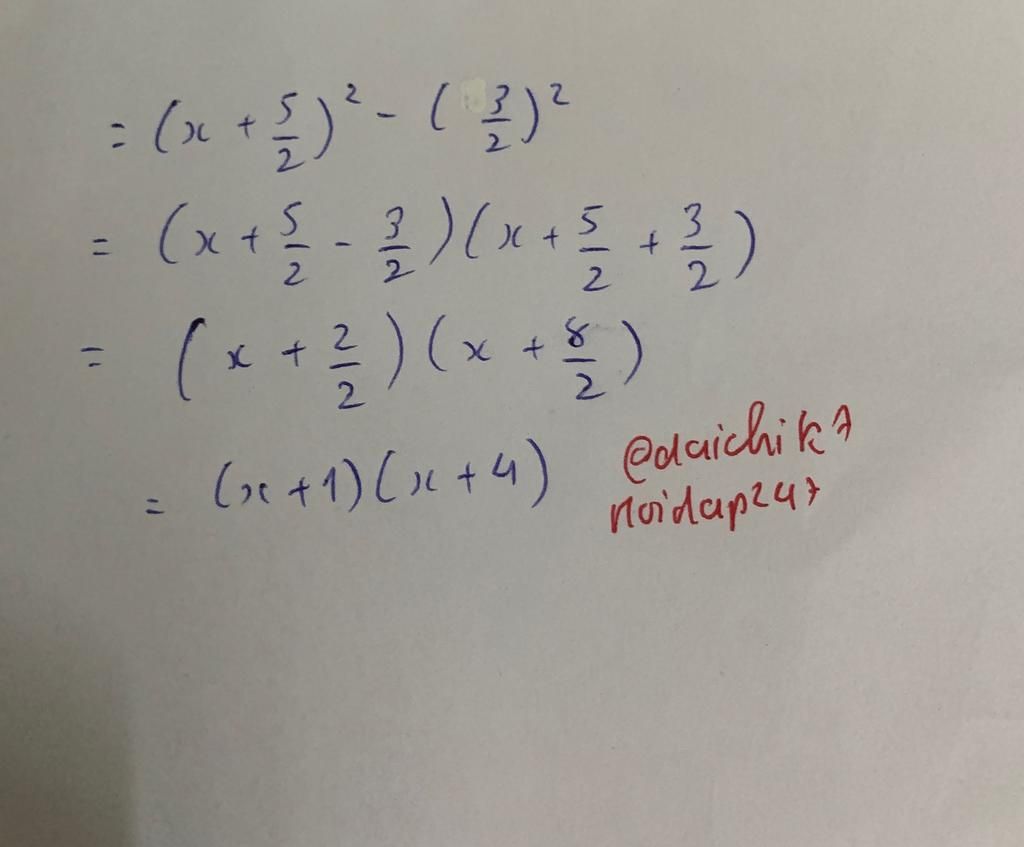 = (x + 5/2)² - (3/2)²
= (x + 5/2 - 3/2)(x + 5/2 + 3/2)
= (x + 2/2)(x + 8/2)
= (x + 1)(x + 4)
@daichik7
noidap247